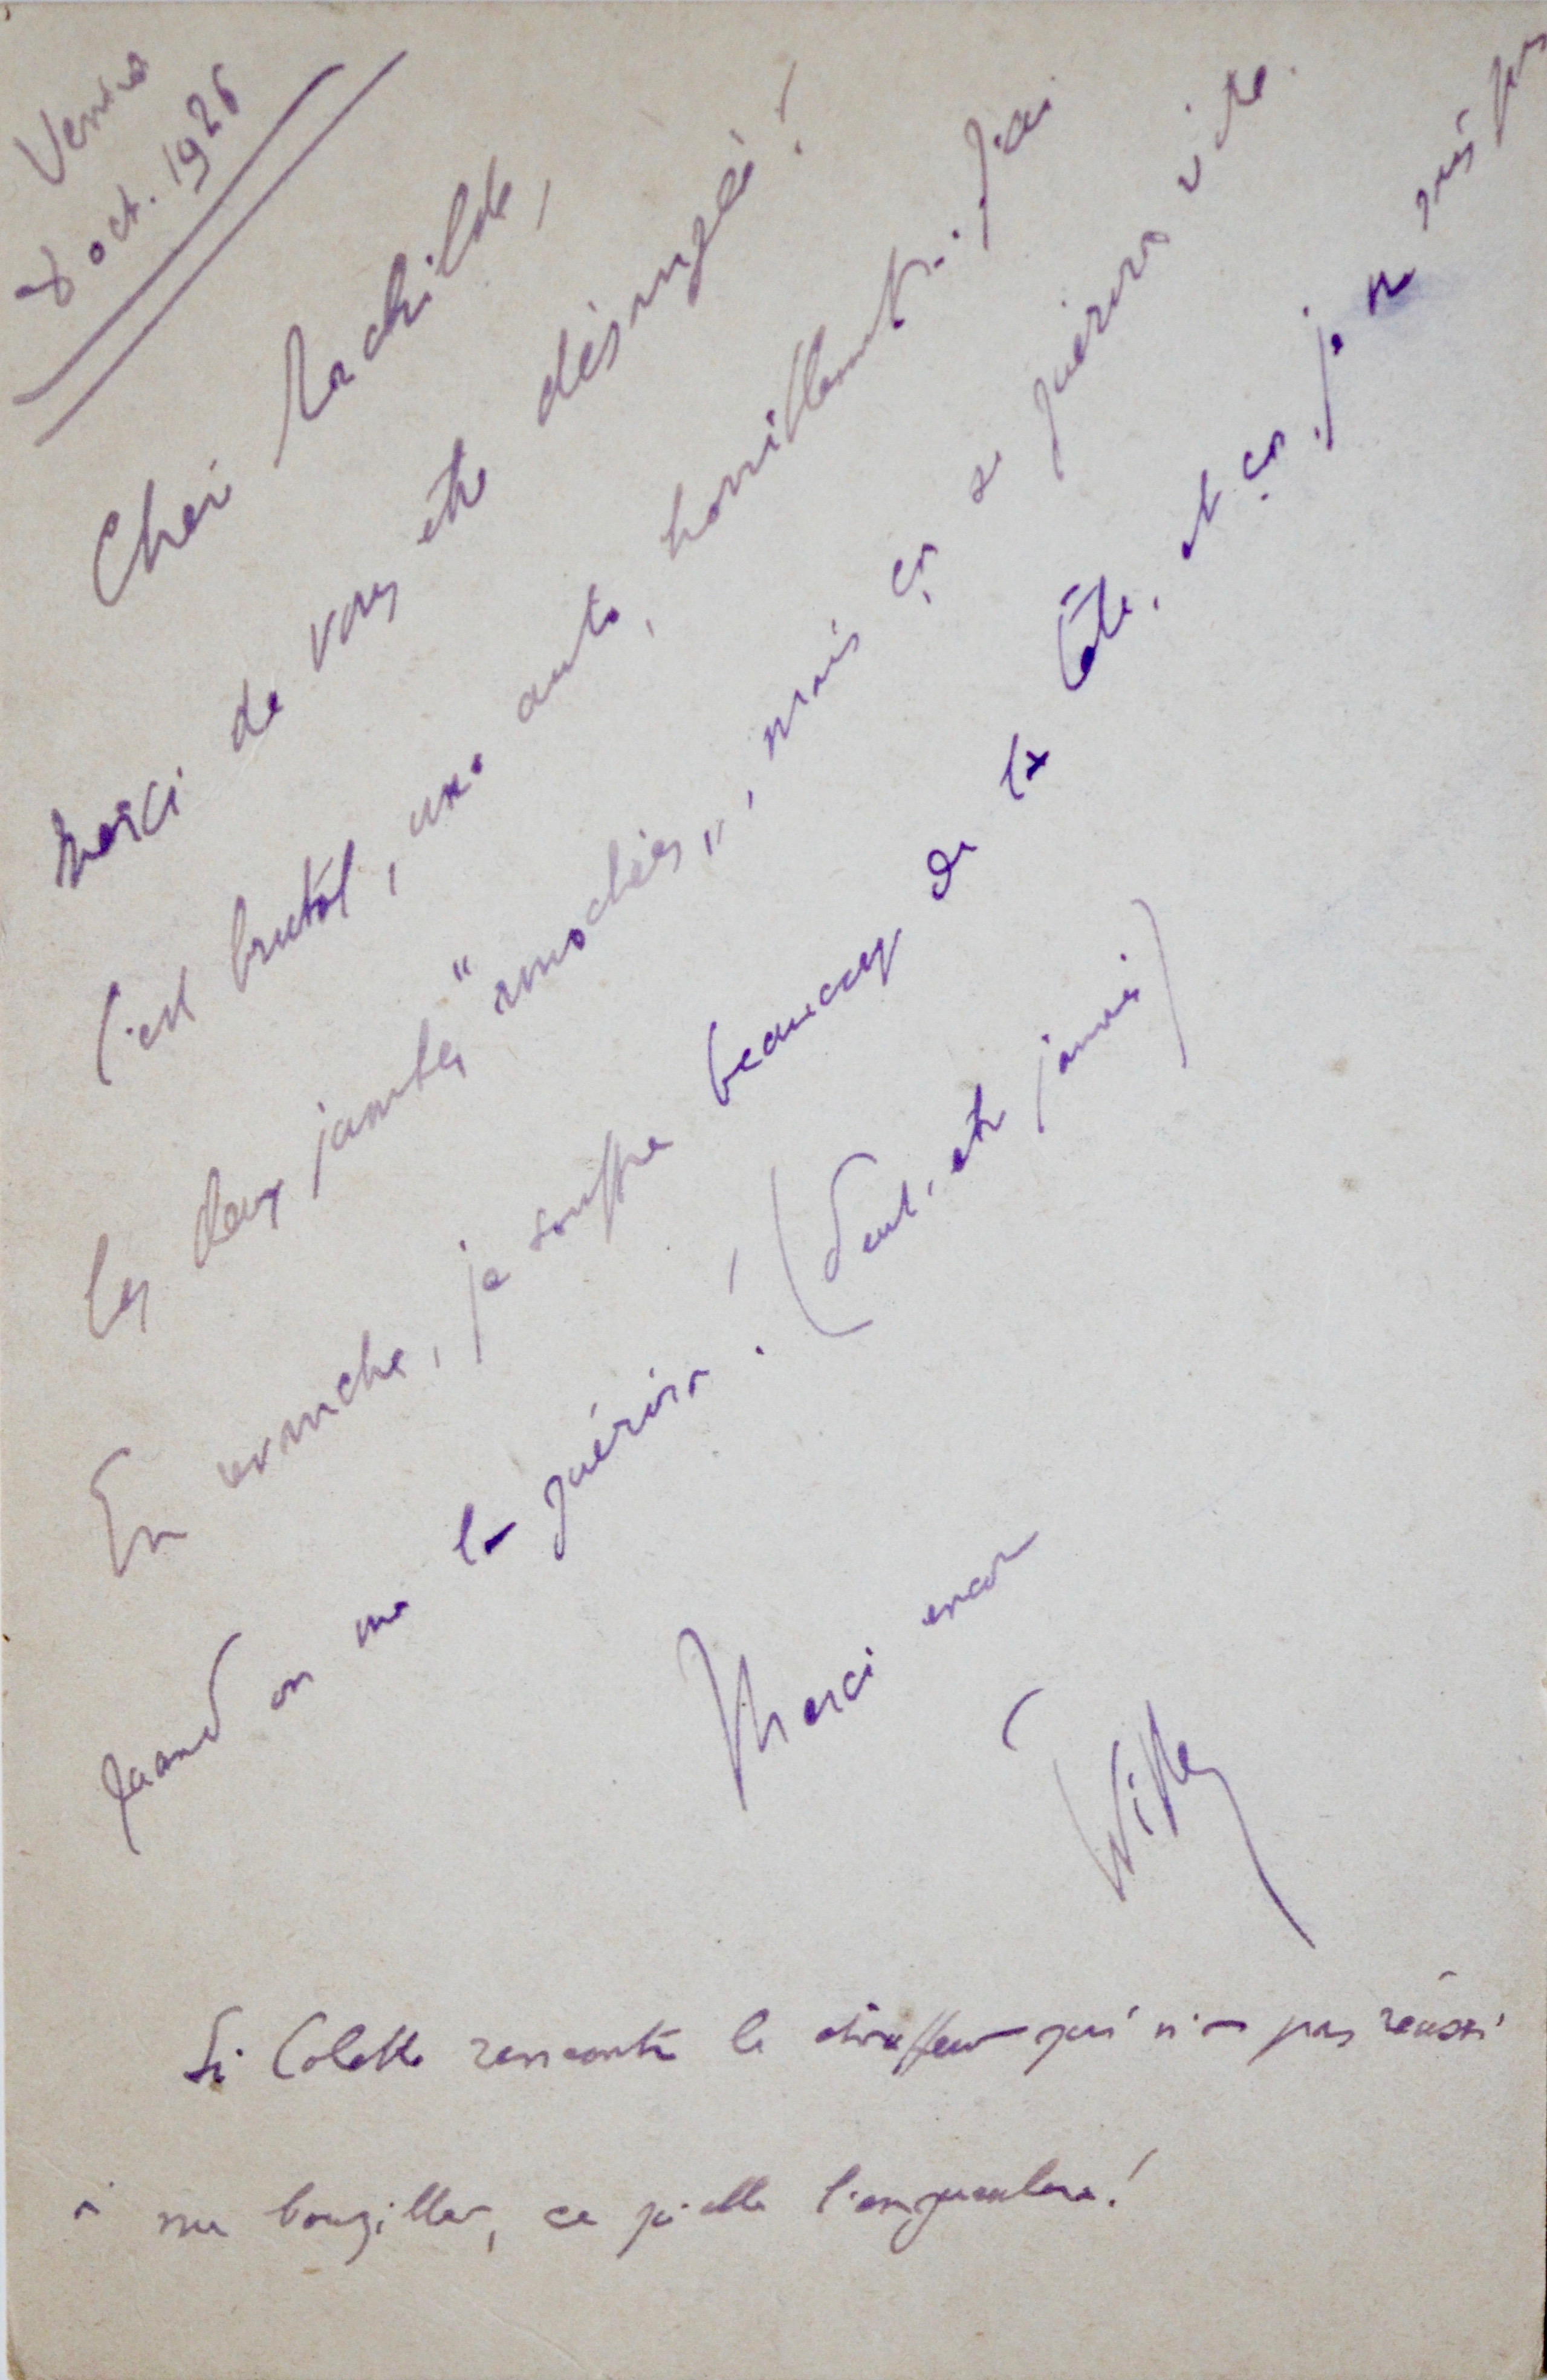 8 oct. 1926
Cher Rachilde,
Merci de vous être dérangée !
C'est brutal, une auto, horriblement. J'ai
les deux jambes "amochées", mais ça se guérira vite.
En revanche, je souffre beaucoup de la tête, et ça, je ne sais pas
quand on me la guérira ! (Peut-être jamais)
Merci encor
Willy
Si Colette rencontre le chauffeur qui n'a pas réussi
à me bouziller, ce qu'elle l'engueulera !